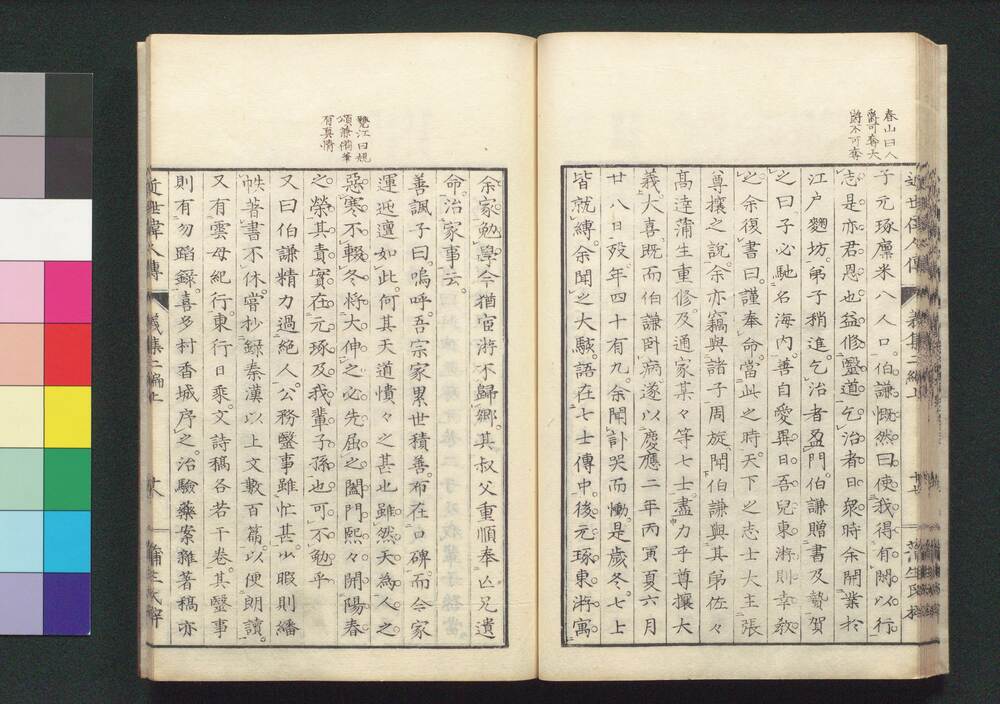 春山曰人
爵可奪天
爵不可奪
子元琢廩米八人口伯謙慨然曰使我得有間以行
志是亦君恩也益修醫道乞治者日衆時余開業於
江戸麴坊弟子稍進乞治者盈門伯謙贈書及贄賀
之曰子必馳名海内善自愛異日吾兒東游則幸教
之余復書曰謹奉命當此之時天下之志士大主張
尊攘之說余亦竊與諸子周旋聞伯謙與其弟佐々
髙達蒲生重修及通家某々等七士盡力乎尊攘大
義大喜既而伯謙臥病遂以慶應二年丙寅夏六月
廿八日歿年四十有九余聞訃哭而慟是歲冬七士
皆就縛余聞之大駭語在七士傳中後元琢東游寓
近世偉人傳 義集二編上 蒲生氏梓
鷲江曰規
頌兼備筆
有真情
余家勉學今猶宦游不歸鄉其叔父重順奉亾兄遺
命治家事云
善諷子曰嗚呼吾宗家累世積善布在口碑而今家
運迍邅如此何其天道憒々之甚也雖然天為人之
惡寒不輟冬将大伸之必先屈之闔門熙々開陽春
之榮其責實在元琢及我輩子孫也可不勉乎
又曰伯謙精力過絕人公務醫事雖忙甚少暇則繙
帙著書不休嘗抄錄秦漢以上文數百篇以便朗讀
又有雲母紀行東行日乘文詩稿各若干卷其醫事
則有勿蹈錄喜多村香城序之治驗藥案雜著稿亦
近世偉人傳 義集二編上 蒲生氏梓